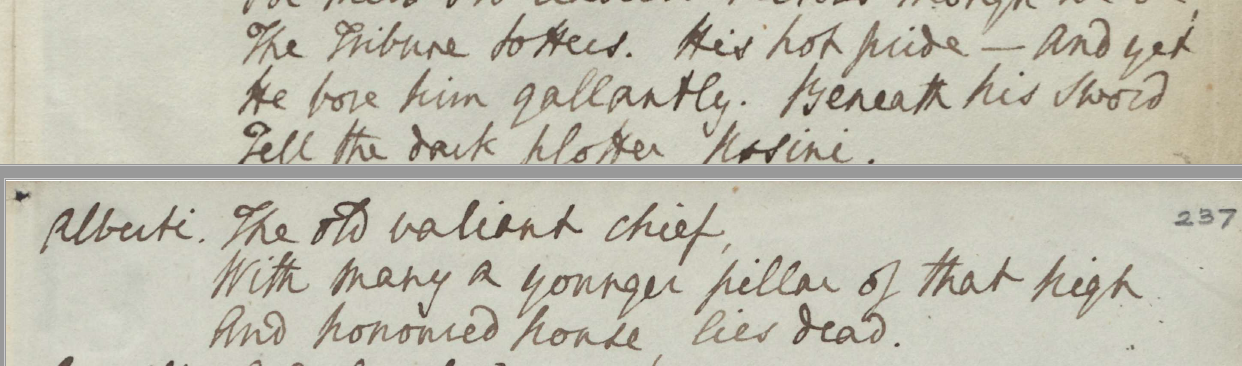 The Tribune totters. His hot pride — and yet
He bore him gallantly. Beneath his sword
Fell the dark plotter Ursini.
237
Alberti. The old valiant chief,
With many a younger pillar of that high
And honoured house, lies dead.